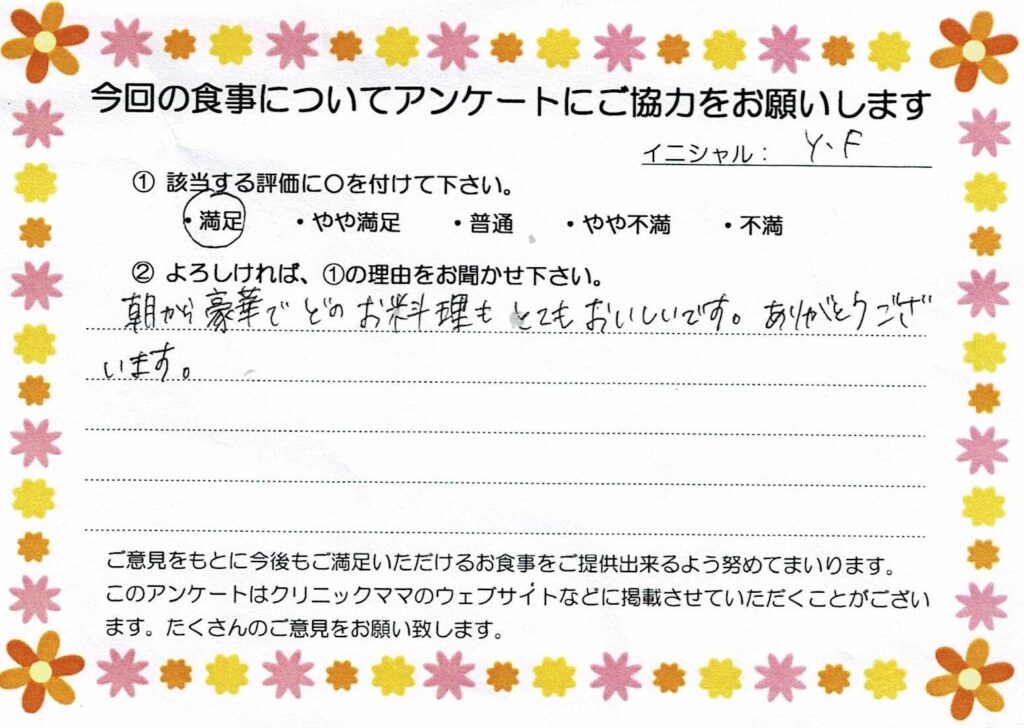 今回の食事についてアンケートにご協力をお願いします
イニシャル： Y.F
① 該当する評価に〇を付けて下さい。
・満足 ・やや満足 ・普通 ・やや不満 ・不満
② よろしければ、①の理由をお聞かせ下さい。
朝から豪華でどのお料理もとてもおいしいです。ありがとうござ
います。
ご意見をもとに今後もご満足いただけるお食事をご提供出来るよう努めてまいります。
このアンケートはクリニックママのウェブサイトなどに掲載させていただくことがござい
ます。たくさんのご意見をお願い致します。